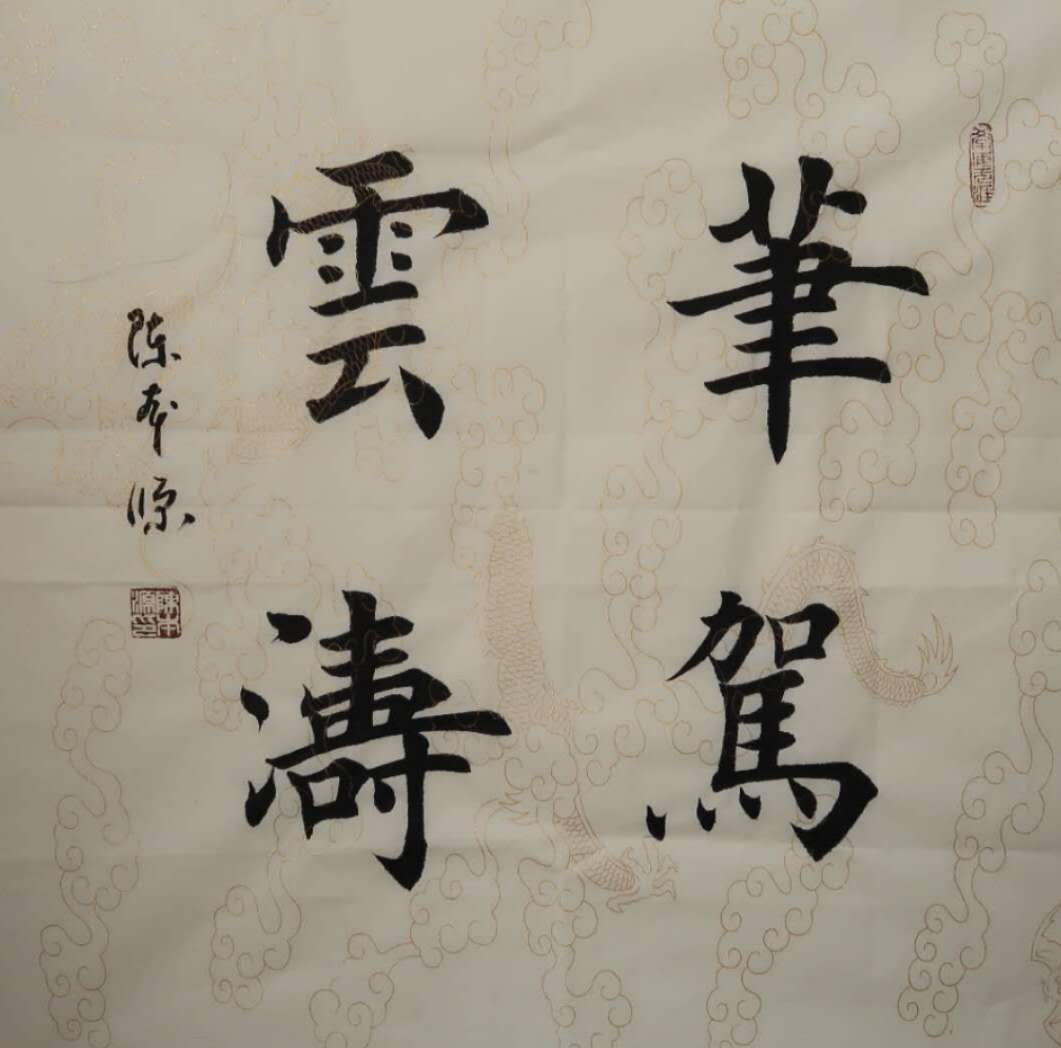 筆駕
雲濤
陈本源
陳本
源印